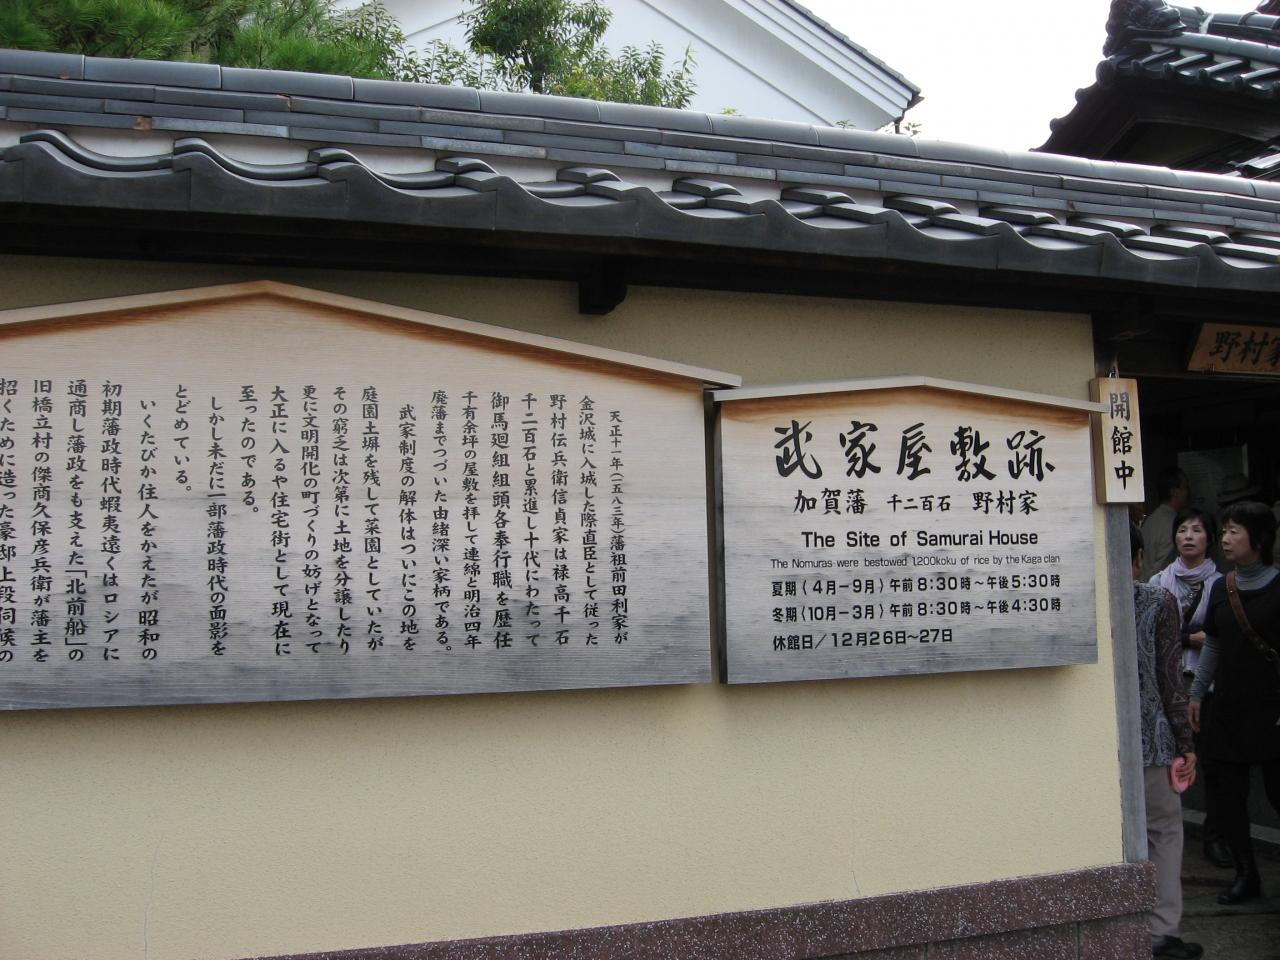 天正十一年(一五八三年)藩祖前田利家が
金沢城に入城した際直臣として従った
野村伝兵衛信貞家は禄高千石
千二百石と累進し十代にわたって
御馬廻組組頭各奉行職を歴任
千有余坪の屋敷を拝して連綿と明治四年
廃藩までつづいた由緒深い家柄である。
武家制度の解体はついにこの地を
庭園土塀を残して菜園としていたが
その窮乏は次第に土地を分譲したり
更に文明開化の町づくりの妨げとなって
大正に入るや住宅街として現在に
至ったのである。
しかし未だに一部藩政時代の面影を
とどめている。
いくたびか住人をかえたが昭和の
初期藩政時代蝦夷遠くはロシアに
通商し藩政をも支えた「北前船」の
旧橋立村の傑商久保彦兵衛が藩主を
招くために造った豪邸上段伺候の
武家屋敷跡
加賀藩 千二百石 野村家
The Site of Samurai House
The Nomuras were bestowed 1,200koku of rice by the Kaga clan
夏期(4月－9月)午前8:30時～午後5:30時
冬期(10月－3月)午前8:30時～午後4:30時
休館日/12月26日～27日
開館中
野村家